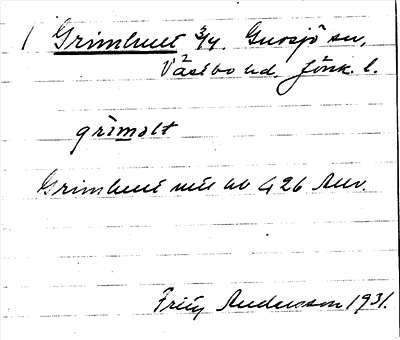 1 Grimhult 3/4. Gnosjö sn,
Västbo hd. Jönk. l.
grimalt
Grimhult nils ab 426 har.
Fritz Andersson 1931.